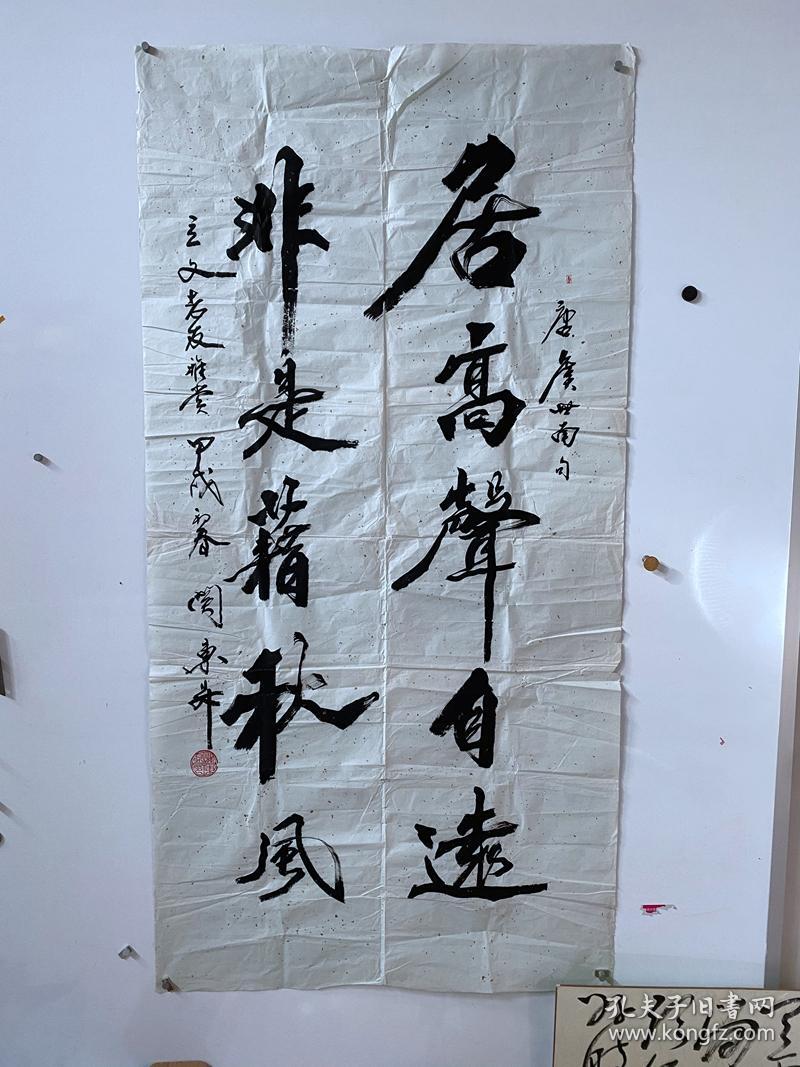 唐虞世南句
居高聲自遠
非是藉秋風
立文老友雅赏 甲戌初春 関東升
孔夫子旧書网
www.kongfz.com